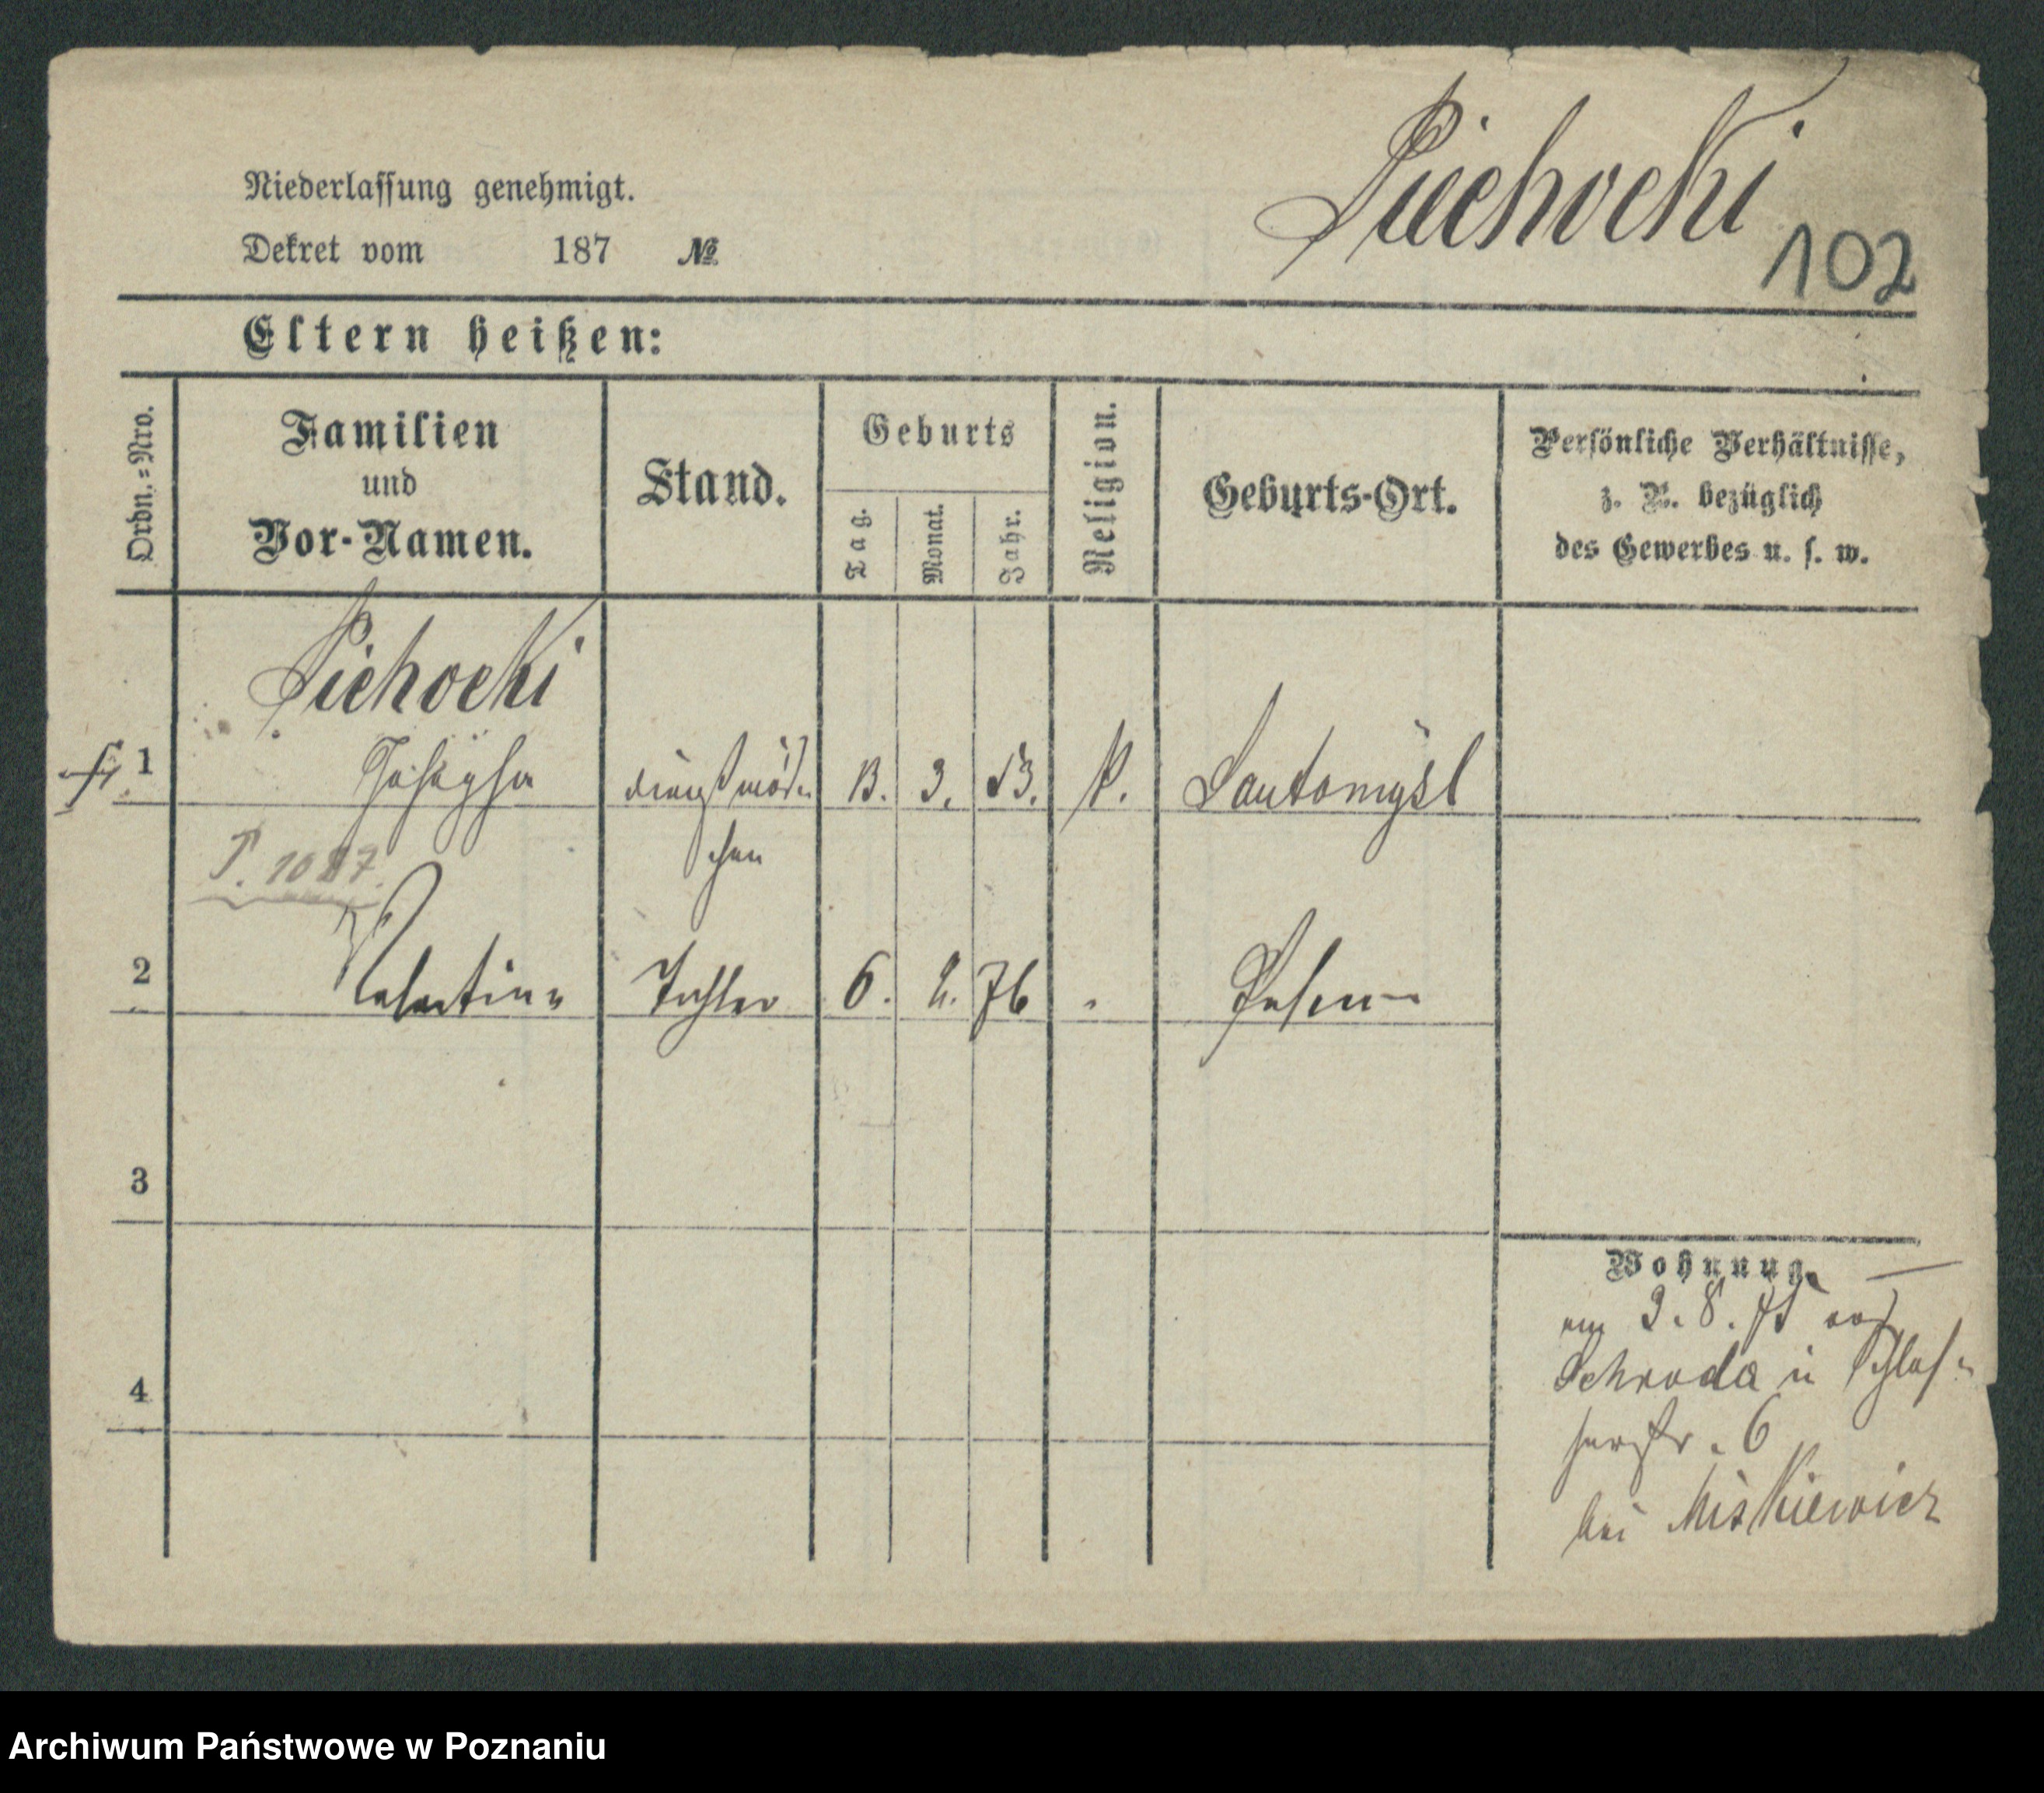 Piechocki
102
Niederlassung genehmigt.
Dekret vom 187 №
Eltern heißen:
Ordn.=Nro.
Familien
und
Vor-Namen.
Stand.
Geburts
Tag.
Monat.
Jahr.
Religion.
Geburts-Ort.
Persönliche Verhältnisse,
z. B. bezüglich
des Gewerbes u. s. w.
Piechocki
1 Josepha Dienstmäd= 13. 3. 53. k. Santomysl
chen
P. 1087.
2 Valentine Tochter 6. 2. 76 " Posen
3
4
Wohnung.
am 3. 8. 75 aus
Schroda in Schlos=
serstr. 6
bei Miskiewicz
Archiwum Państwowe w Poznaniu